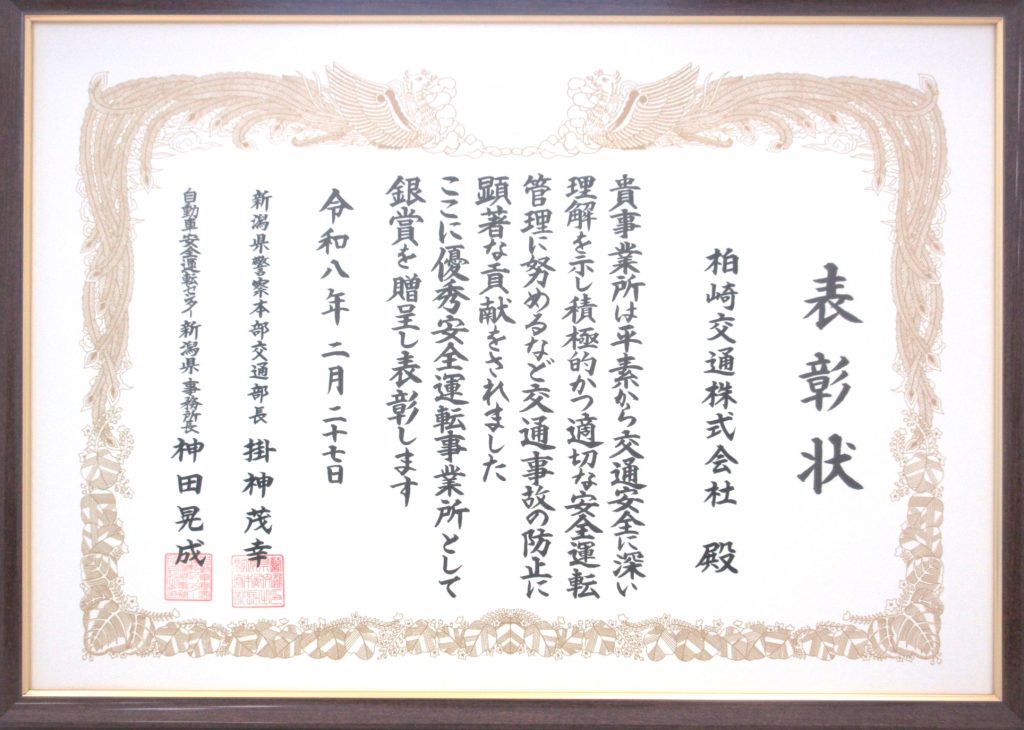 表彰状
柏崎交通株式会社 殿
貴事業所は平素から交通安全に深い
理解を示し積極的かつ適切な安全運転
管理に努めるなど交通事故の防止に
顕著な貢献をされました
ここに優秀安全運転事業所として
銀賞を贈呈し表彰します
令和八年 二月 二十七日
新潟県警察本部交通部長 掛神茂幸
自動車安全運転センター新潟県事務所長 神田晃成